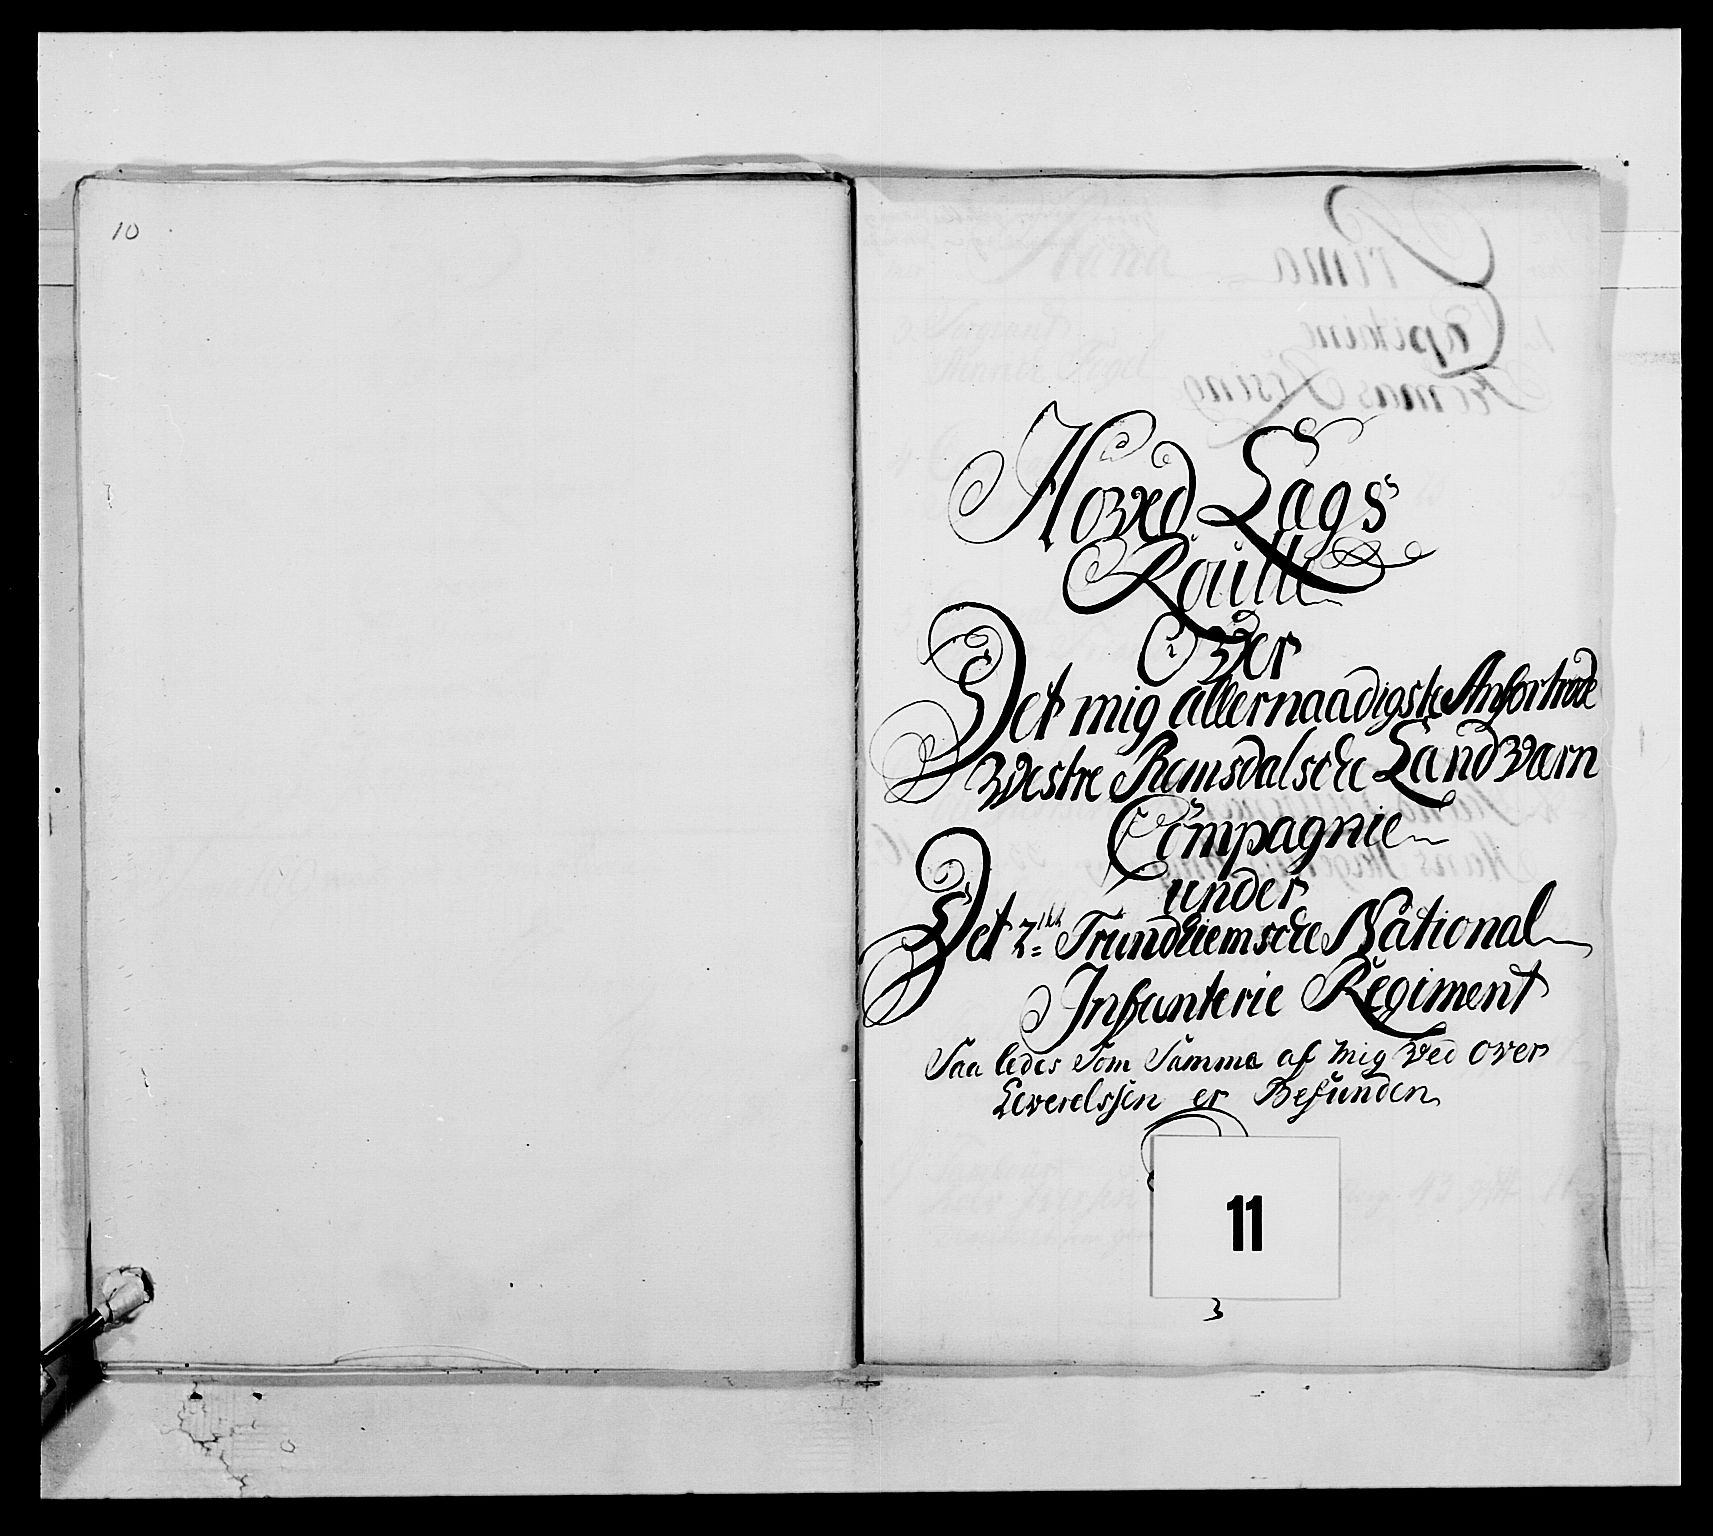 10
Hoved Lags
Roulle
Over
Det mig allernaadigste Anfortrode
Westre Romsdalsche Land Værn
Compagnie
under
Det 2det Trundhiemsche National
Infanterie Regiment
Saa ledes Som Samme af mig Ved Over
Leverelssen er Befunden
11
3